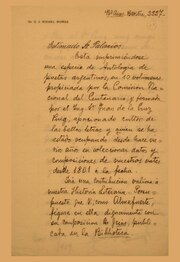 Estimado A. Palacios:
Está imprimiéndose
una especie de Antología de
poetas argentinos, en 10 volúmenes
prohijada por la Comisión Na-
cional del Centenario y formada
por el Sr. Dn. Juan de la Cruz
Puig, apasionado cultor de
las bellas letras y quien se ha
estado ocupando desde hace
años en coleccionar datos y
composiciones de nuestros vates
desde 1801 á la fecha
Será una contribución valiosa á
nuestra Historia Literaria.
puesto que V., como Almafuerte,
figura en ella dignamente con
su composición
cada en la Biblioteca